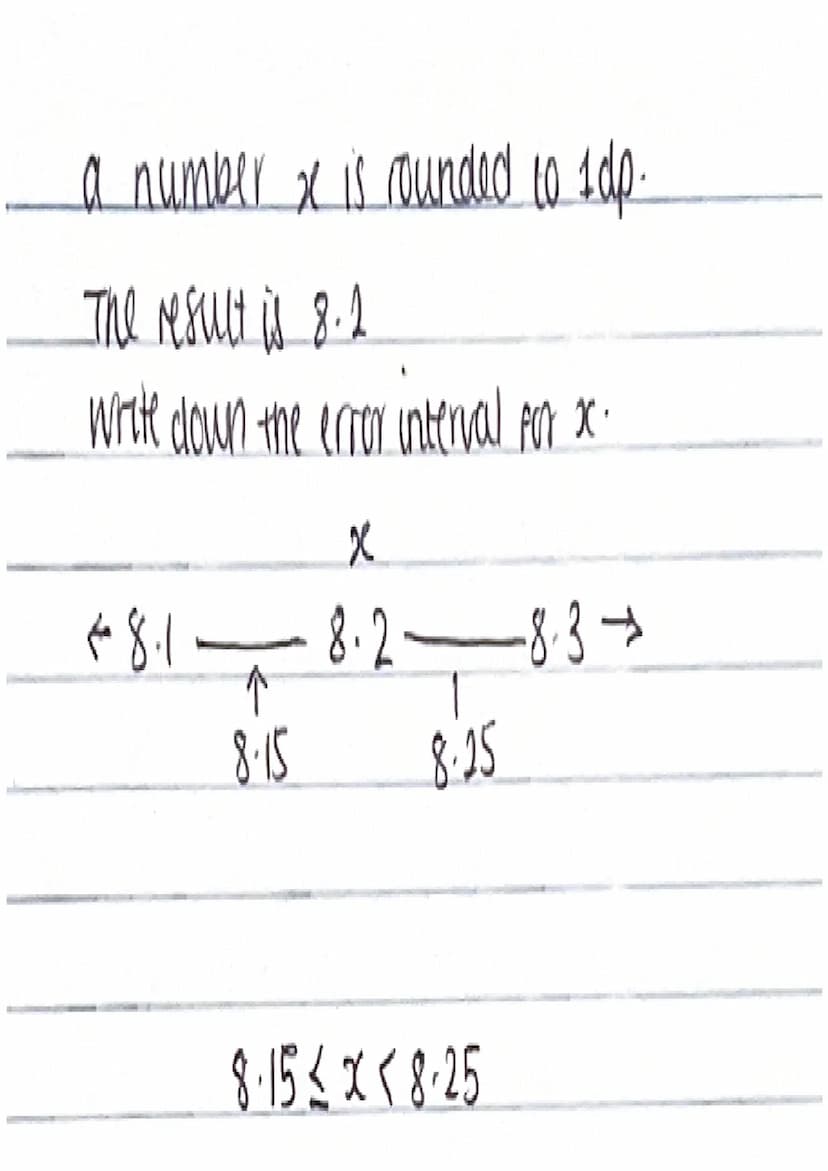 a number x is rounded to 1dp.
The result is 8.2
write down the error interval for x.
x
← 8.1 — 8.2 — 8.3 →
↑ |
8.15 8.25
8.15 ≤ x < 8.25